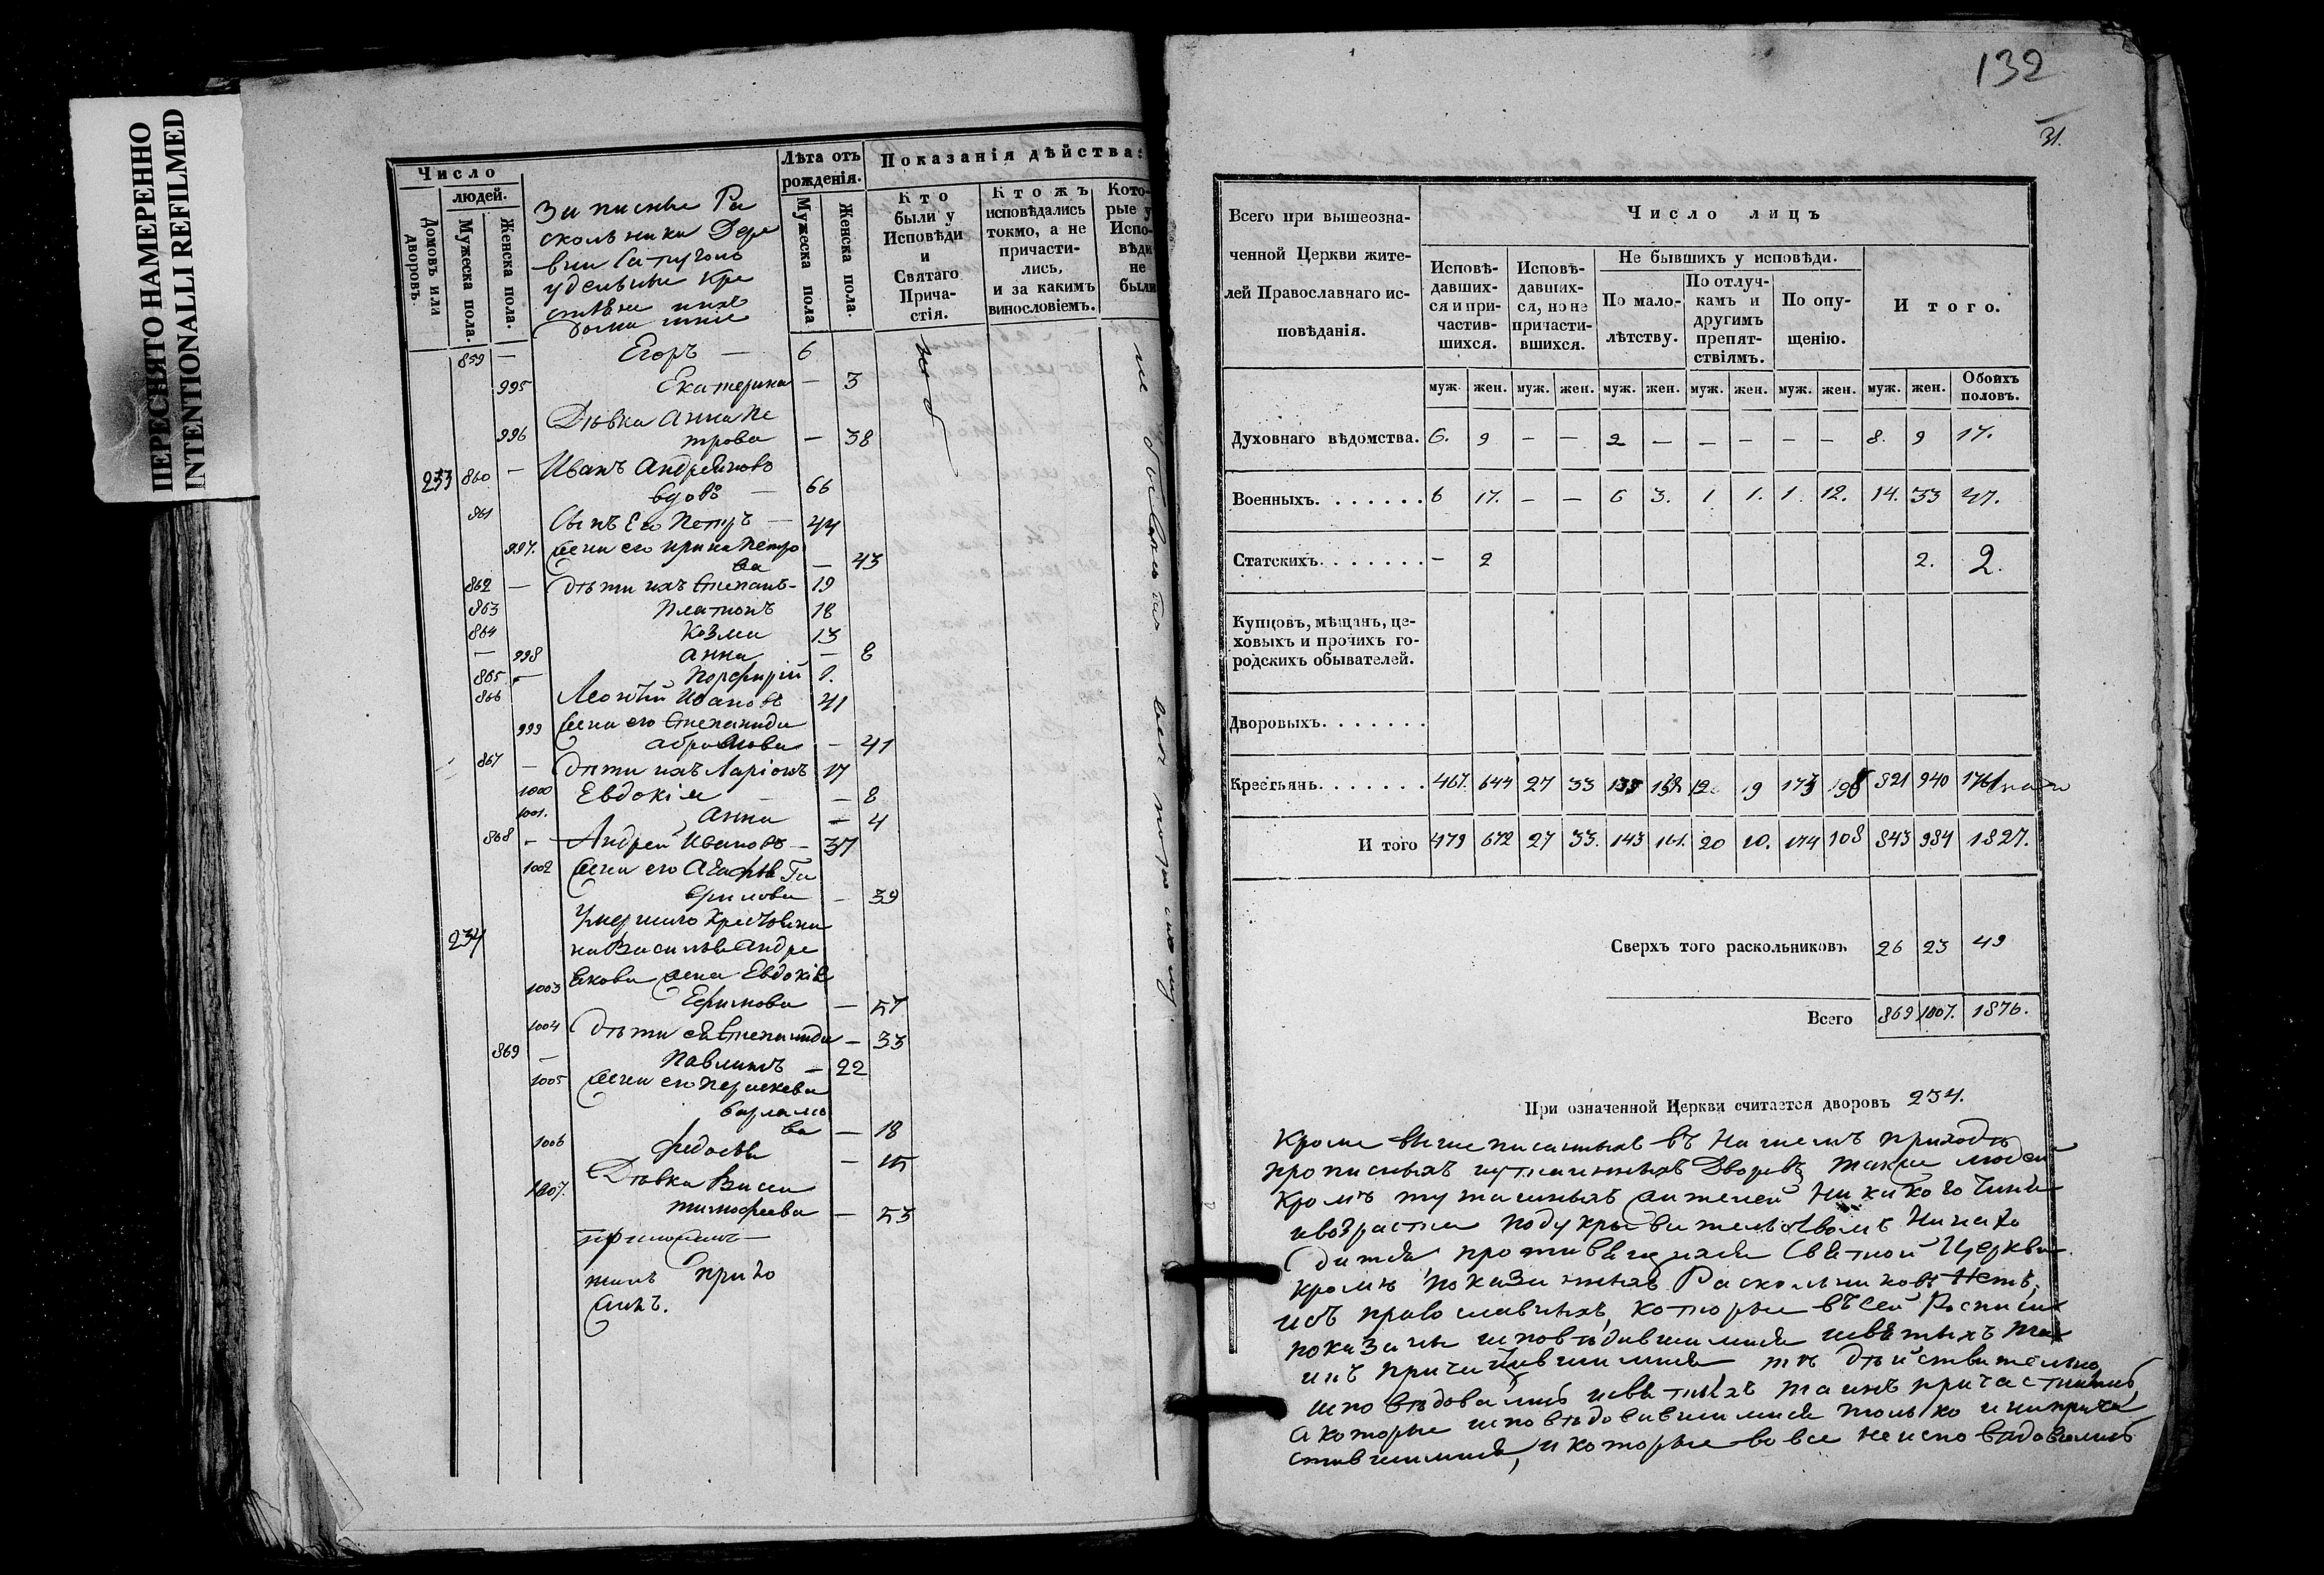 ПЕРЕСНЯТО НАМЕРЕННО
INTENTIONALLI REFILMED
Число
людей.
Домовъ или дворовъ.
Мужеска пола.
Женска пола.
Записные Ра
скольники Дере
вни
удельные кре
стьяне
Лѣта отъ
рожденія.
Мужеска пола
Женска пола.
Показанія дѣйства:
Кто
были у
Исповѣди
и
Святаго
Прича-
стія.
Кто жъ
исповѣдались
токмо, а не
причасти-
лись,
и за какимъ
винословіемъ.
Кото-
рые у
Испо-
вѣди
не
были
859 — Егоръ — 6
995 Екатерина — 3
Дѣвка Анна Пе
996 трова — 38
233 860 — Иванъ Андреяновъ
вдовъ — 66
861 Сынъ Его Петръ — 44
997. Жена его Ирина Петро
ва — 43
862 — Дѣти ихъ Степанъ — 19
863 Платонъ 18
864 Козма 13
— 998 Анна — 8
865 — Порфирій
866 Леонтій Ивановъ 41
999 Жена его Степанида
Абрамова — 41
867 — Дѣти ихъ Ларіонъ 17
1000 Евдокія — 8
1001. Анна — 4
868 — Андрей Ивановъ — 37
1002 Жена его Агафья Га
врилова — 39
Умершаго Крестьяни
234 на Василья Андре
1003 янова жена Евдокія
Ефимова — 57
1004 Дѣти ея Степанида — 33
869 — Павлинъ — 22
1005 Жена его Перасковья
Варламо
ва — 18
1006 Федосья — 15
1007. Дѣвка Васса
Тимофеева — 53
132
31.
Всего при вышеозна-
ченной Церкви жите-
лей Православнаго ис-
повѣданія.
Число лицъ
Исповѣ-
давших-
ся и при-
частив-
шихся.
Исповѣ-
давших-
ся, но не
причасти-
вшихся.
Не бывшихъ у исповѣди.
По мало-
лѣтству.
По отлуч-
камъ и
другимъ
препят-
ствіямъ.
По опу-
щенію.
Итого.
муж. жен. муж. жен. муж. жен. муж. жен. муж. жен. муж. жен. Обоихъ
половъ.
Духовнаго вѣдомства. 6. 9 — — 2 — — — — — 8. 9 17.
Военныхъ. . . . . . . 6 17. — — 6 3. 1 1. 1. 12. 14. 33 47.
Статскихъ. . . . . . . — 2 2. 2.
Купцовъ, мѣщанъ, це-
ховыхъ и прочихъ го-
родскихъ обывателей.
Дворовыхъ. . . . . . .
Крестьянъ. . . . . . . 467. 644 27 33 135 158 19 173 821 940 1761
И того 479 672 27 33. 143 161. 20 20. 174 843 984 1827.
Сверхъ того раскольниковъ 26 23 49
Всего 869 1007. 1876.
При означенной Церкви считается дворовъ 234.
Кроме вышеписанныхъ въ нашемъ приходѣ
прописныхъ и утаенныхъ Дворовъ также людей
Кромѣ жителей никакого чина
и возраста подукрывательствомъ нинахо
дится, противящихся Святой Церкви
кромѣ показанныхъ Раскольниковъ Нетъ,
изъ православныхъ, которые въ сей Росписи
показаны исповѣдавшимися исвятыхъ Та
инъ причастившимися тѣ дѣйствительно
исповѣдовались исвятыхъ таинъ причастились,
а которые исповѣдовавшимися только инеприча
стившимися, и которые вовсе неисповѣдовались